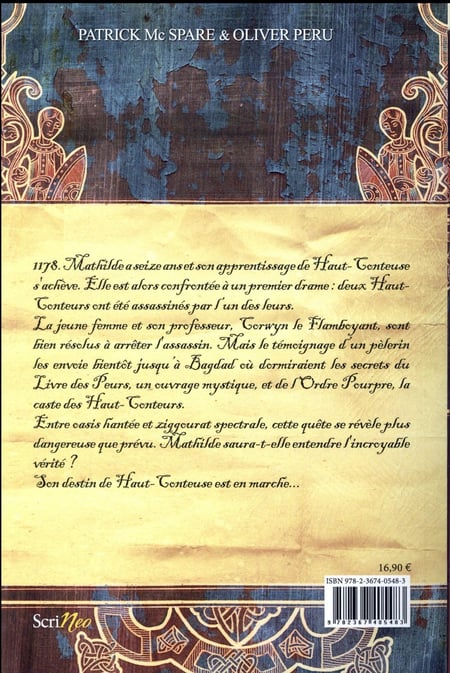 PATRICK Mc SPARE & OLIVER PERU
1178. Mathilde a seize ans et son apprentissage de Haut-Conteuse
s'achève. Elle est alors confrontée à un premier drame : deux Haut-
Conteurs ont été assassinés par l'un des leurs.
La jeune femme et son professeur, Corwyn le Flamboyant, sont
bien résolus à arrêter l'assassin. Mais le témoignage d'un pèlerin
les envoie bientôt jusqu'à Bagdad où dormiraient les secrets du
Livre des Peurs, un ouvrage mystique, et de l'Ordre Pourpre, la
caste des Haut-Conteurs.
Entre oasis hantée et ziggourat spectrale, cette quête se révèle plus
dangereuse que prévu. Mathilde saura-t-elle entendre l'incroyable
vérité ?
Son destin de Haut-Conteuse est en marche...
16,90 €
ISBN 978-2-3674-0548-3
9 782367 405483
ScriNeo